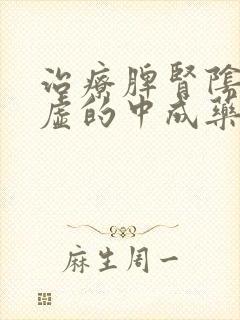 治療脾腎陰
虛的中成藥
麻生周一